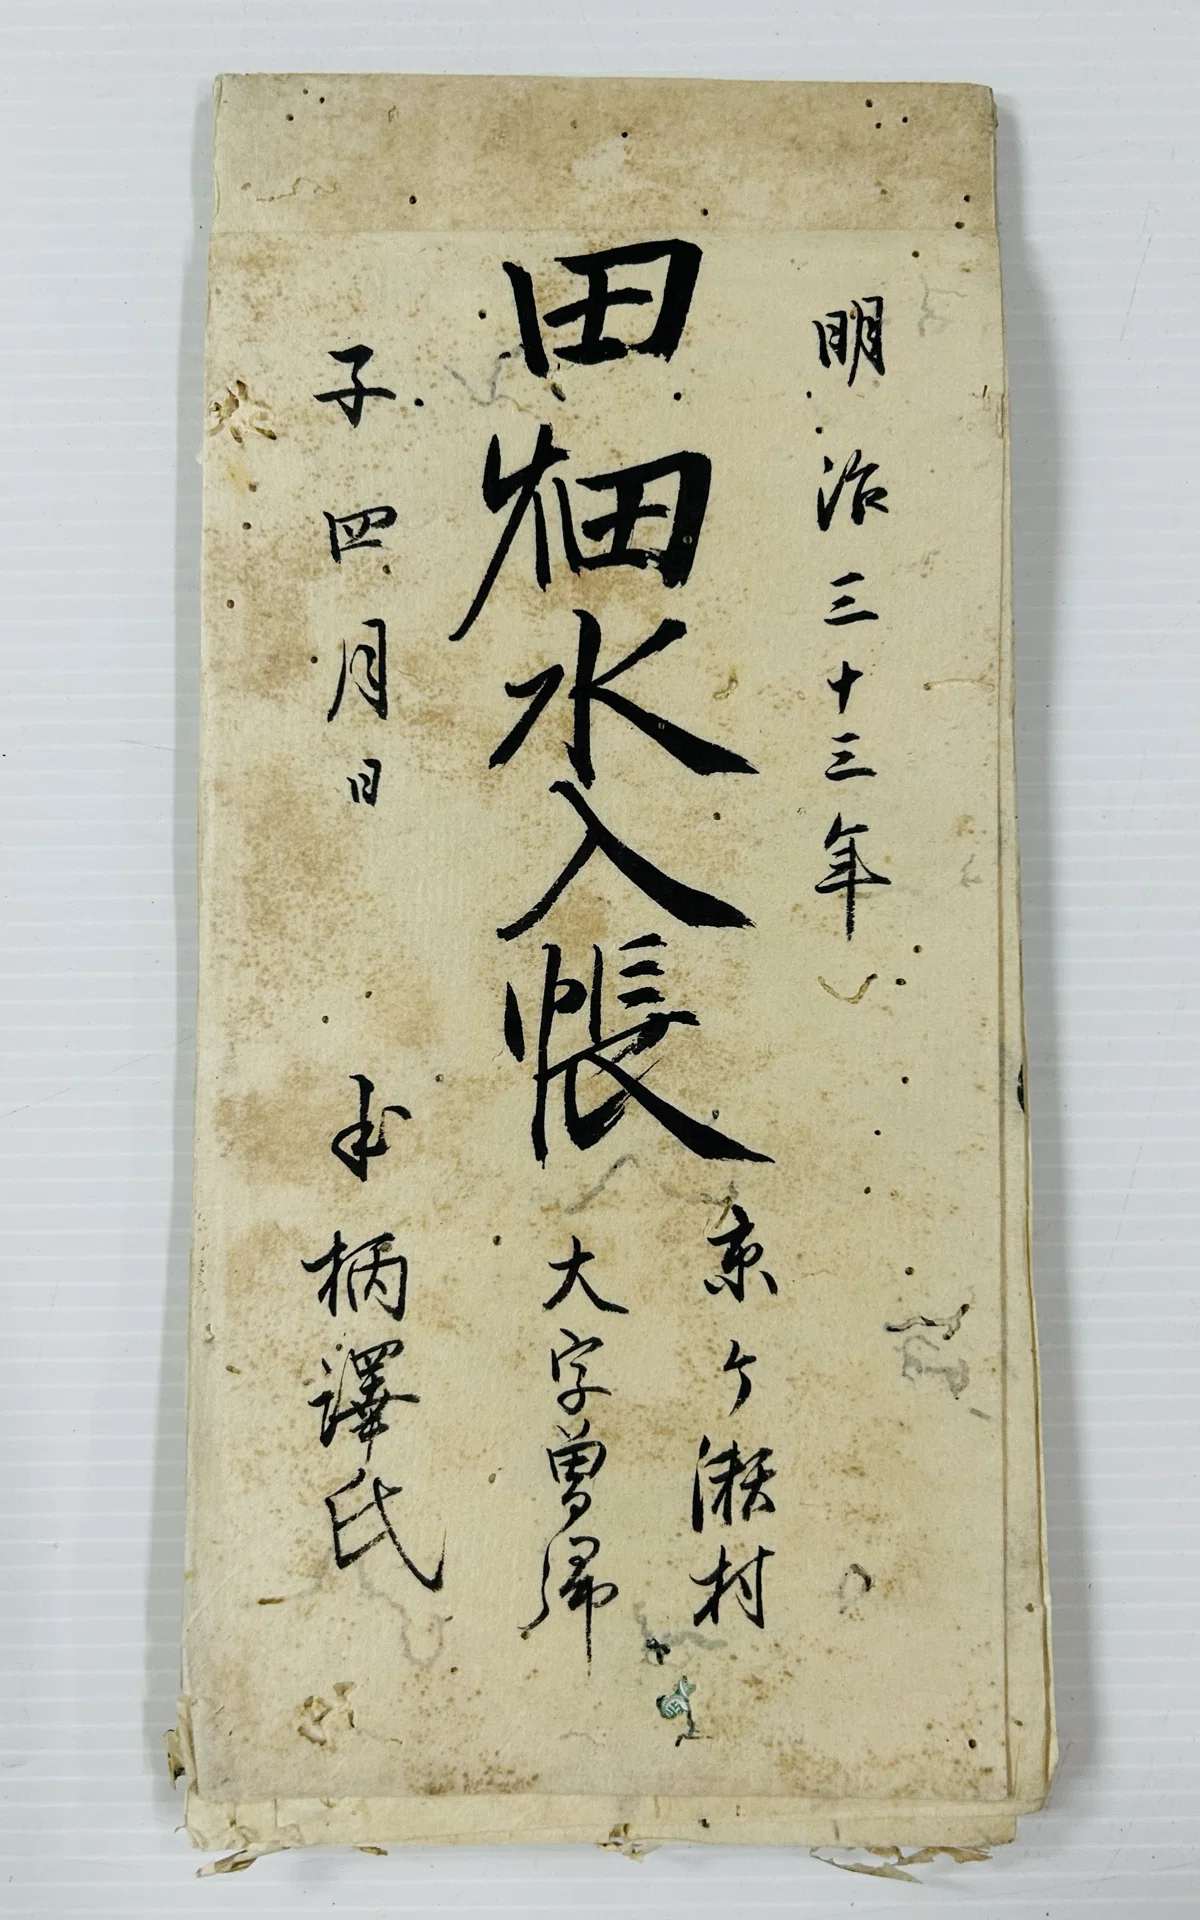 明治三十三年
田畑水入帳
京ヶ瀬村
大字曽郷
子四月日
柄澤氏